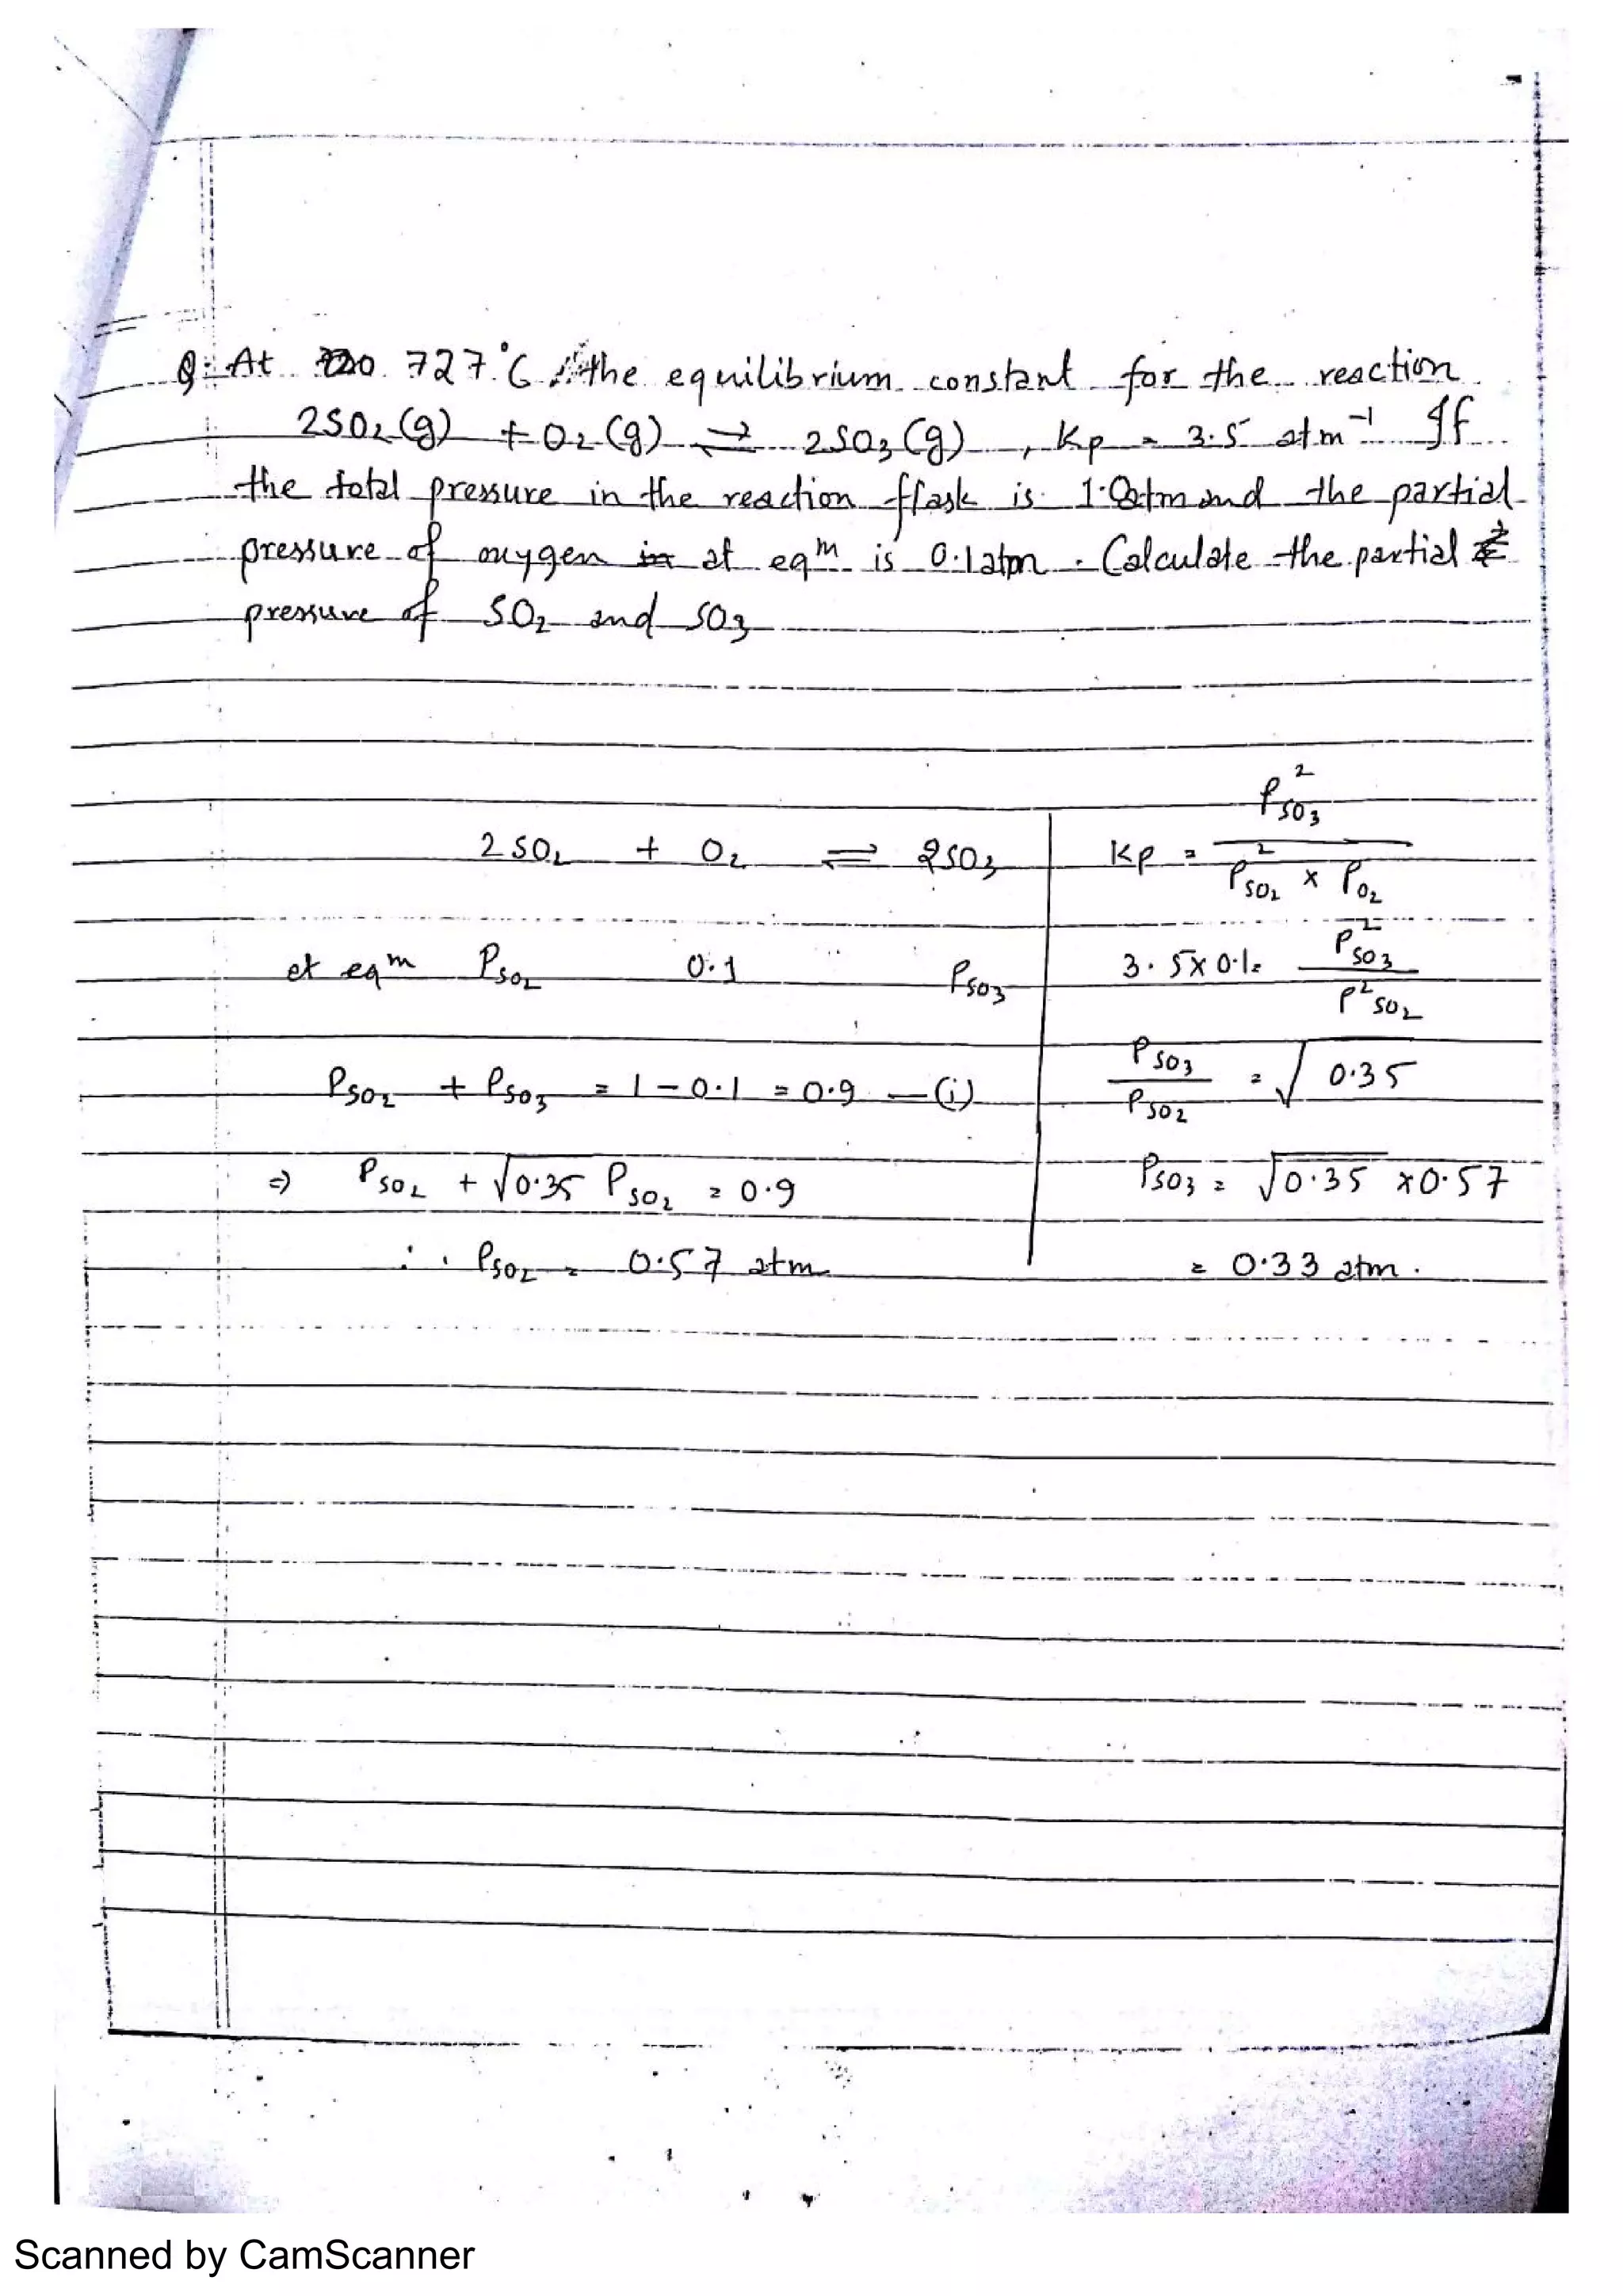 Q: At 727°C the equilibrium constant for the reaction
2SO₂(g) + O₂(g) ⇌ 2SO₃(g), Kp = 3.5 atm⁻¹ If
the total pressure in the reaction flask is 1.0atm and the partial
pressure of oxygen in at eqᵐ is 0.1atm. Calculate the partial
pressure of SO₂ and SO₃
2SO₂ + O₂ ⇌ 2SO₃
at eqᵐ P_SO₂ 0.1 P_SO₃
P_SO₂ + P_SO₃ = 1 - 0.1 = 0.9 — (i)
⇒ P_SO₂ + √0.35 P_SO₂ = 0.9
∴ P_SO₂ = 0.57 atm
Kp = P²_SO₃ / P²_SO₂ × P_O₂
3.5 × 0.1 = P²_SO₃ / P²_SO₂
P_SO₃ / P_SO₂ = √0.35
P_SO₃ = √0.35 × 0.57
= 0.33 atm.
Scanned by CamScanner